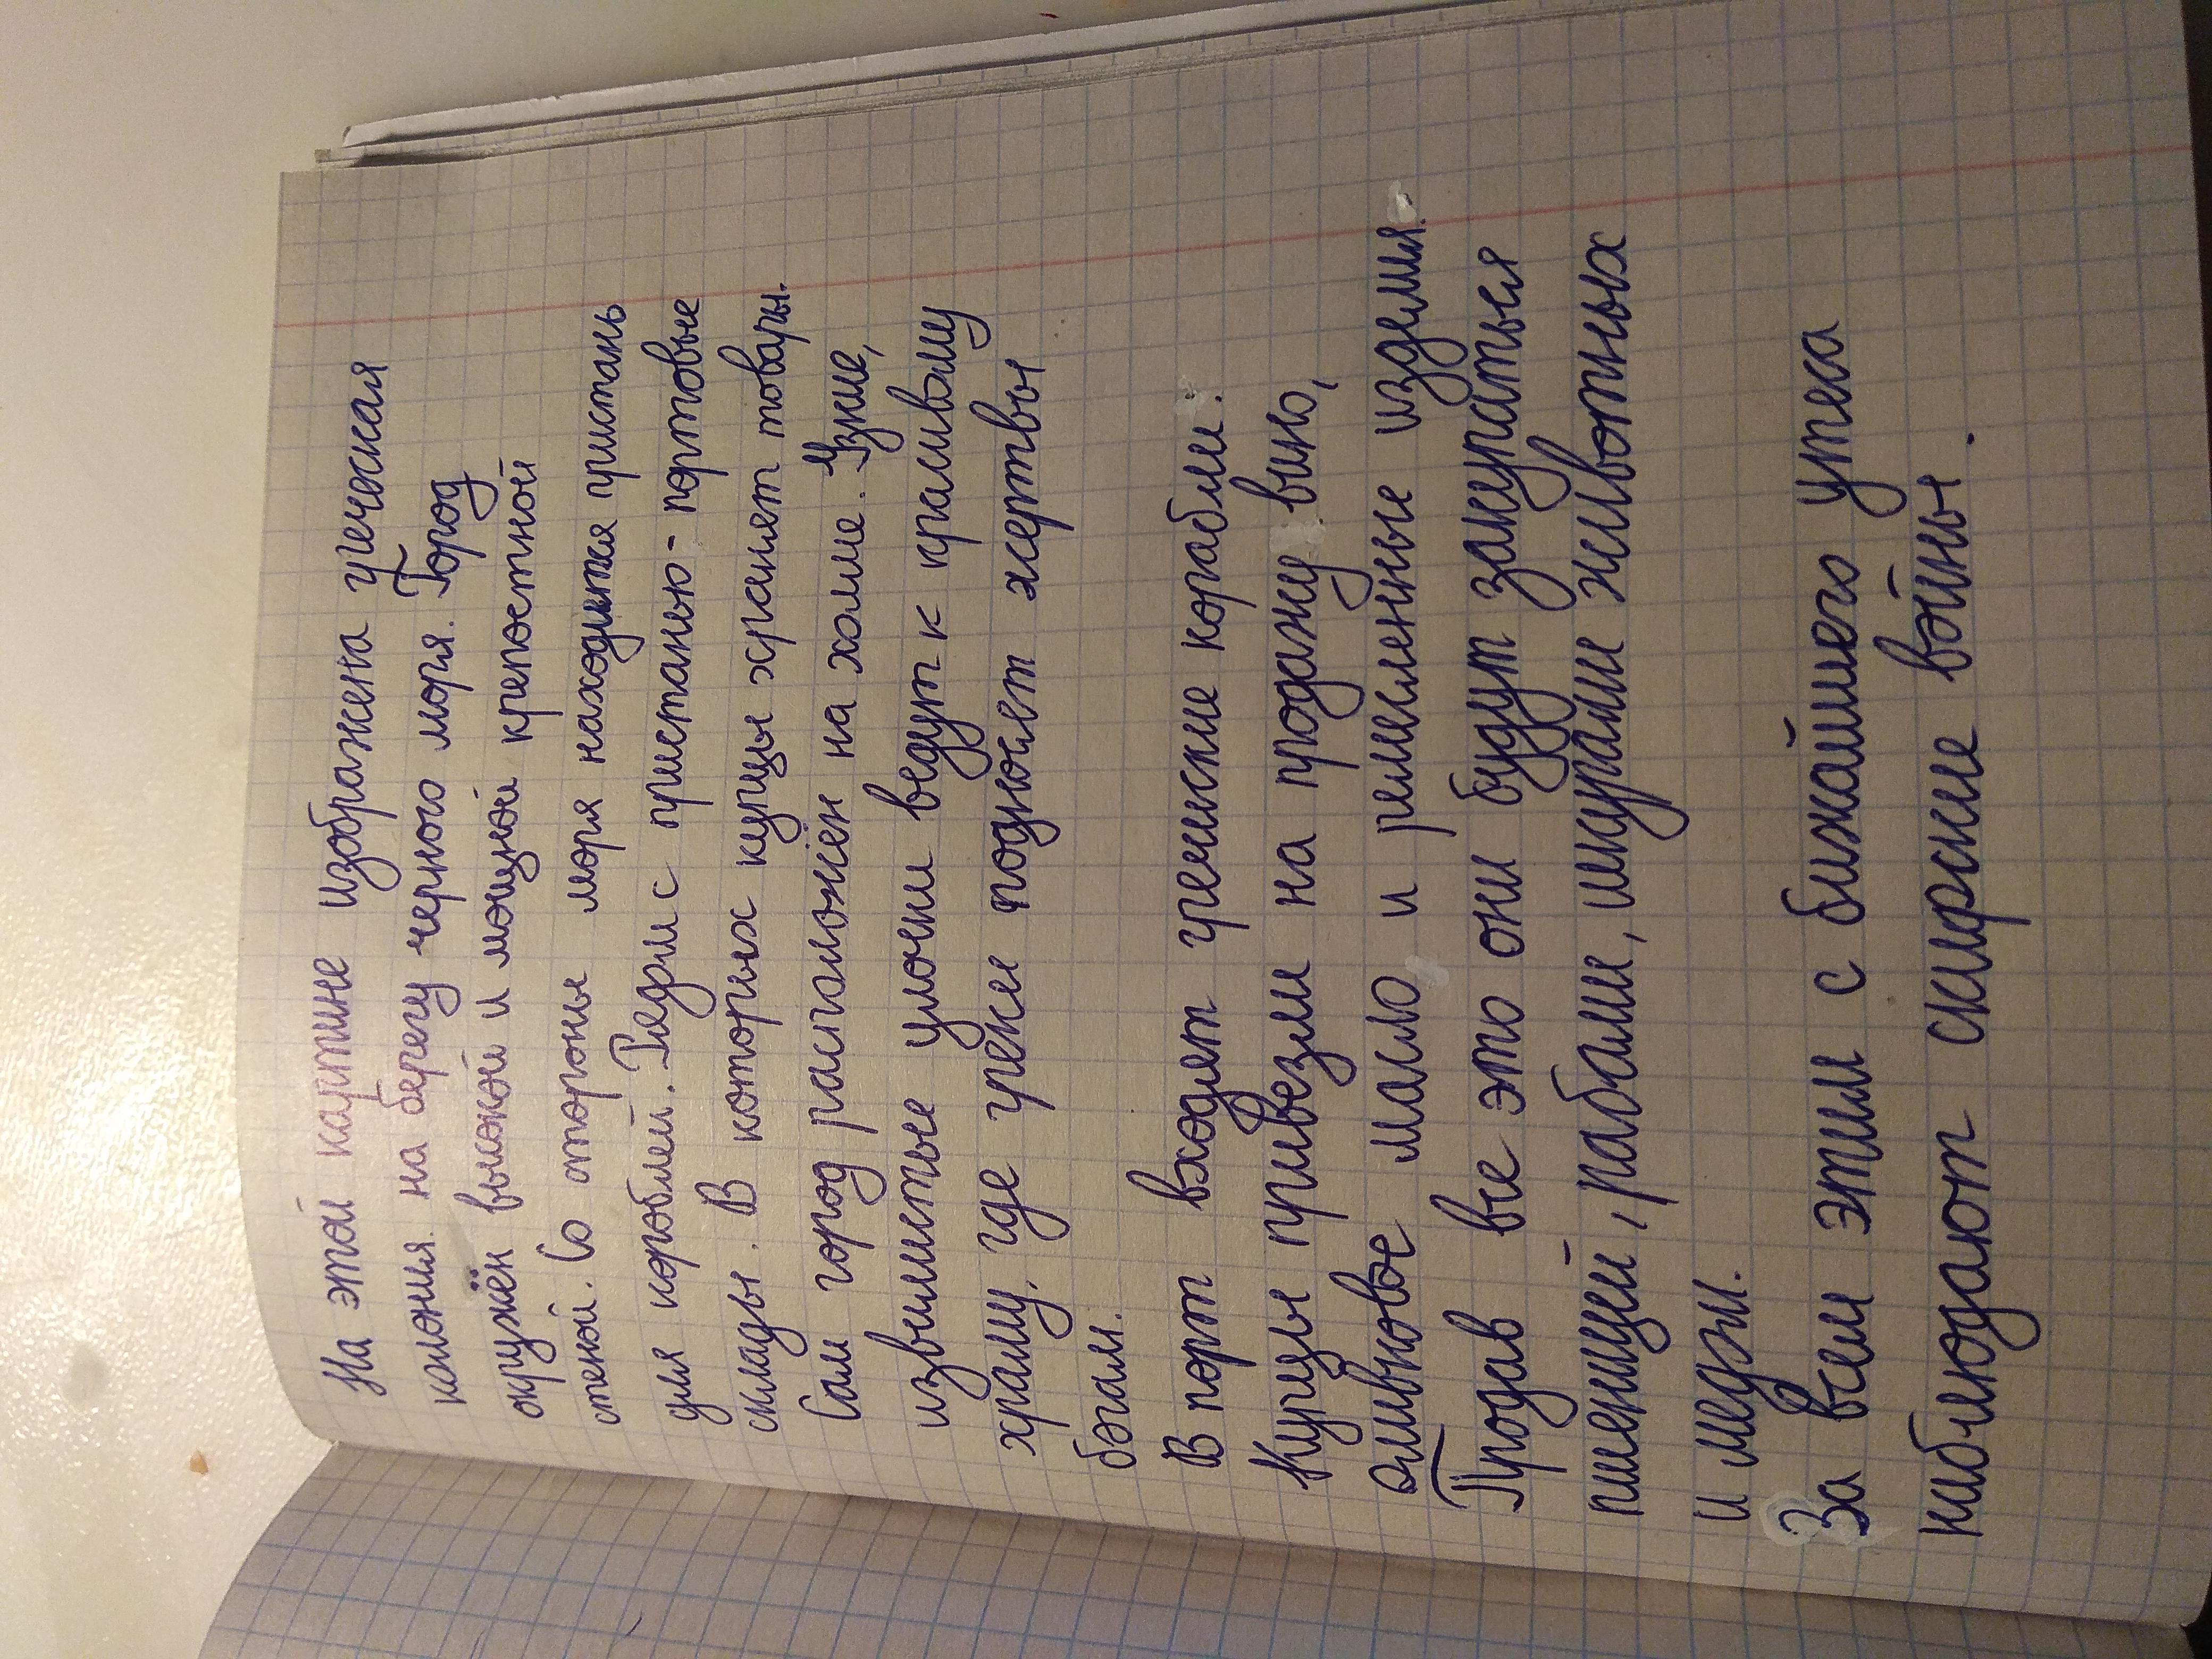 На этой картине изображена греческая
колония на берегу черного моря. Город
окружён высокой и мощной крепостной
стеной. Со стороны моря находится пристань
для короблей. Рядом с пристанью - портовые
склады. В которых купцы хранят товары.
Сам город расположен на холме. Узкие,
извилистые улочки ведут к красивому
храму, где греки подносят жертвы
богам.
В порт входят греческие корабли.
Купцы привезли на продажу вино,
оливковое масло и ремесленные изделия.
Продав все это они будут закупаться
пшеницей, рабами, шкурами животных
и медом.
За всем этим с ближайшего утёса
наблюдают скифские войны.